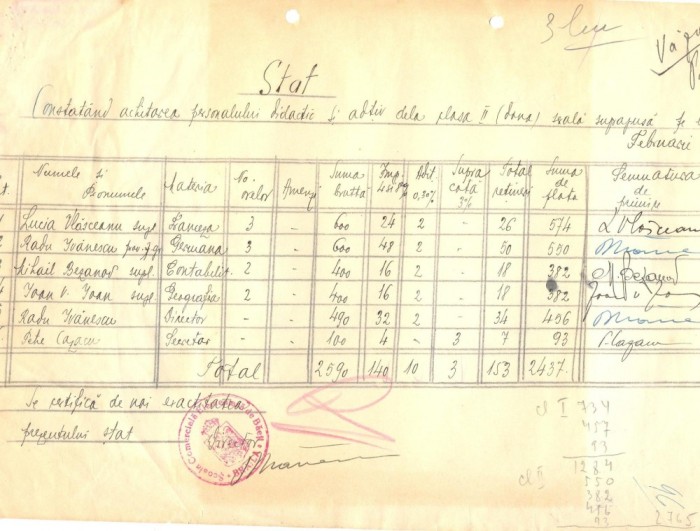 3 
Vă
Stat
Constatând achitarea personalului didactic și adtiv dela clasa II (două) seală supapusă pe
Februarie
Numele și Pronumele Materia No. orelor Amenzi Suma brută Imp. Adit 0,20% Supra cotă 3% Total rețineri Suma de plată Semnatura de primire
Lucia Vlăsceanu supl. Franceza 3 - 600 24 2 - 26 574 L Vlăscean
2 Radu Ivănescu Germana 3 - 600 48 2 - 50 550
3 Mihail Bezanov supl. Contabilit. 2 - 400 16 2 - 18 382
4 Ioan V. Ioan supl Geografia 2 - 400 16 2 - 18 382 Ioan V
5 Radu Ivănescu Director - - 490 32 2 - 34 456
Petre Cazacu Secretar - - 100 4 - 3 7 93 Cazacu
Total 2590 140 10 3 153 2437.
Se certifică de noi exactitatea
prezentului stat
Director
Școala Comercială de Băeți
cl I 734
457
93
1284
cl II 550
382
456
93
2765